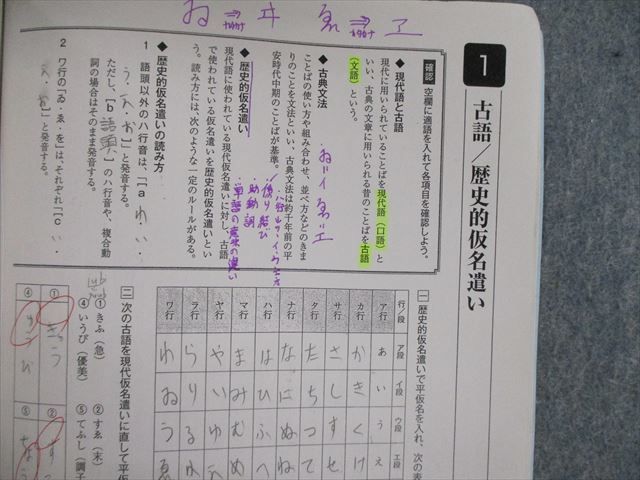 ゐ ⇒ ヰ ゑ ⇒ ヱ
1 古語／歴史的仮名遣い
確認 空欄に適語を入れて各項目を確認しよう。
◆現代語と古語
現代に用いられていることばを現代語（口語）と
いい、古典の文章に用いられる昔のことばを古語
（文語）という。
◆古典文法
ことばの使い方や組み合わせ、並べ方などのきま
りのことを文法といい、古典文法は約千年前の平
安時代中期のことばが基準。
◆歴史的仮名遣い
現代語に使われている現代仮名遣いに対し、古語
で使われている仮名遣いを歴史的仮名遣いとい
う。読み方には、次のような一定のルールがある。
・係り結び
・助動詞
・単語の意味の違い
◆歴史的仮名遣いの読み方
1 語頭以外のハ行音は、「[a わ・い・
う・え・お]」と発音する。
ただし、[b 語頭]のハ行音や、複合動
詞の場合はそのまま発音する。
2 ワ行の「ゐ・ゑ・を」は、それぞれ「[c い・
え・お]」と発音する。
一 歴史的仮名遣いで平仮名を入れ、次の表
行／段 ア段 イ段 ウ段 エ段
ア行 あ い う え
カ行 か き く け
サ行 さ し す せ
タ行 た ち つ て
ナ行 な に ぬ ね
ハ行 は ひ ふ へ
マ行 ま み む め
ヤ行 や い ゆ
ラ行 ら り る
ワ行 わ ゐ う ゑ
二 次の古語を現代仮名遣いに直して平仮
① きふ（急）
② すゑ（末）
④ いうび（優美）
⑤ てふし（調子
①
②
④
⑤